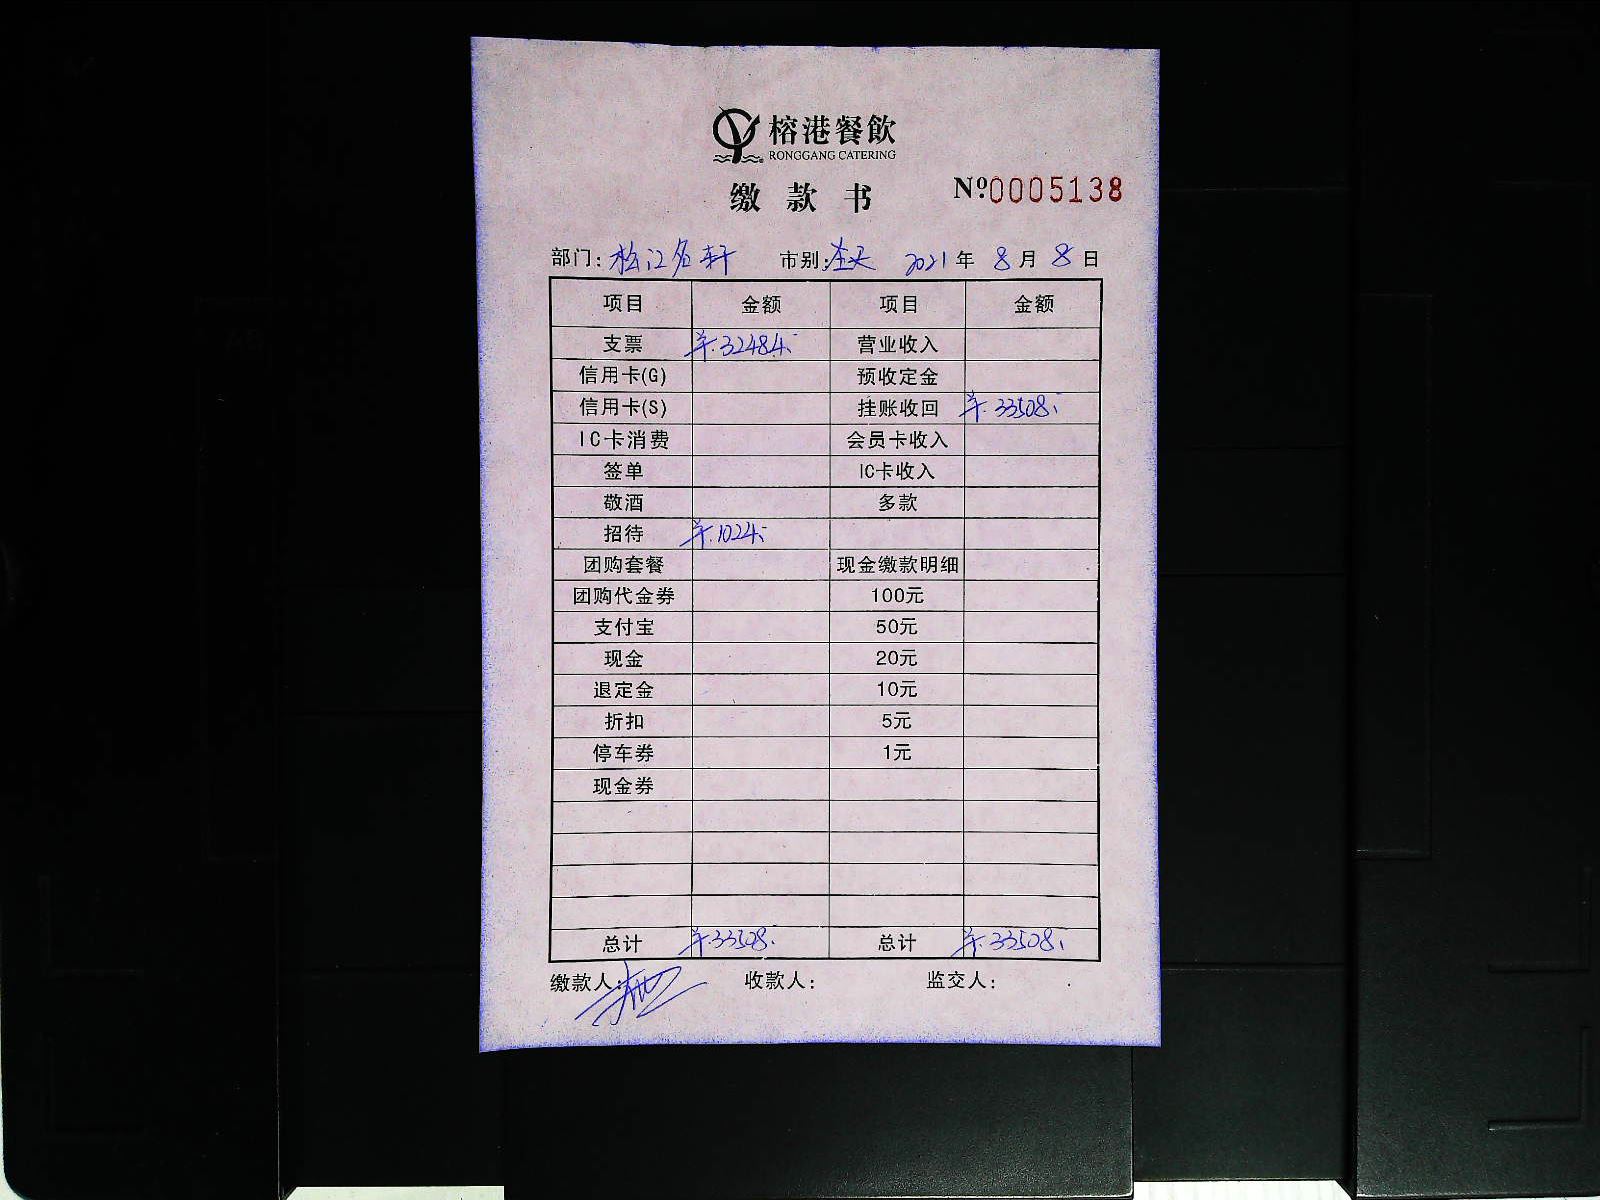 榕港餐飲
RONGGANG CATERING
缴款书 №0005138
部门: 松江名轩 市别: 2021年8月8日
项目 金额 项目 金额
支票 ¥.32484. 营业收入
信用卡(G) 预收定金
信用卡(S) 挂账收回 ¥.33508.
IC卡消费 会员卡收入
签单 IC卡收入
敬酒 多款
招待 ¥.1024.
团购套餐 现金缴款明细
团购代金券 100元
支付宝 50元
现金 20元
退定金 10元
折扣 5元
停车券 1元
现金券
总计 ¥.33508. 总计 ¥.33508.
缴款人: 收款人: 监交人: